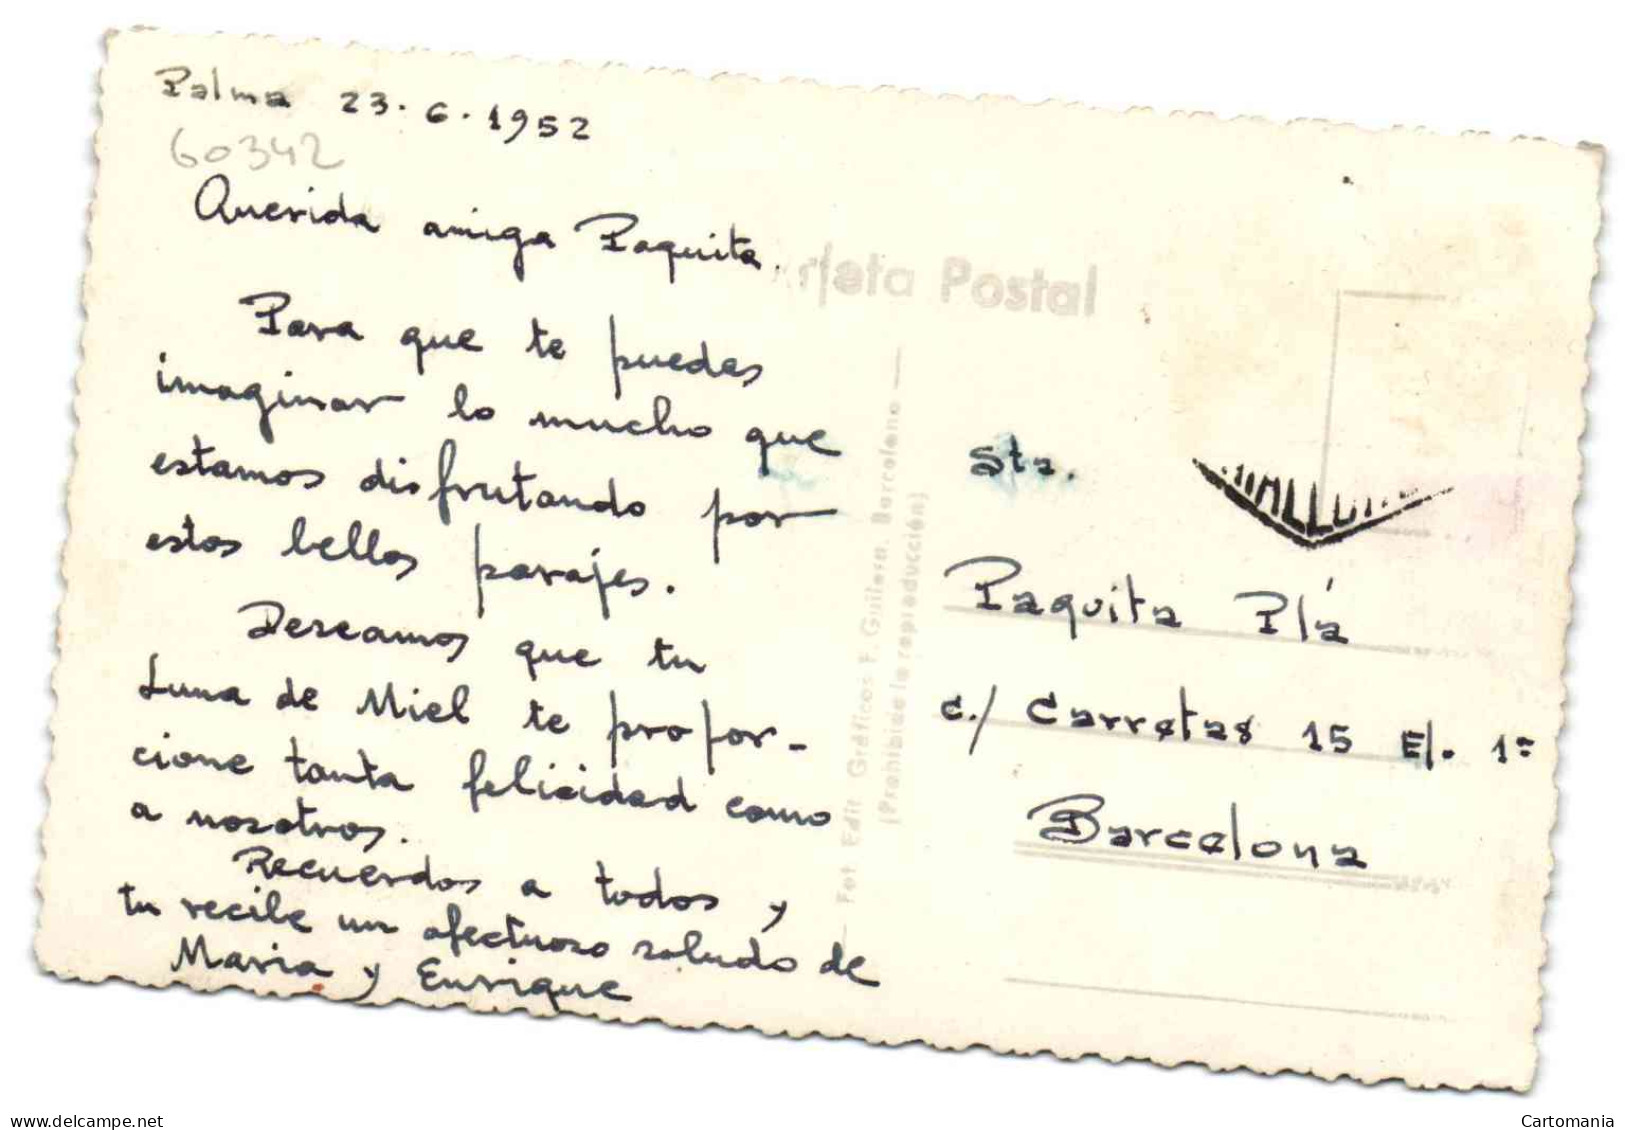 Palma 23.6.1952
60342
Querida amiga Paquita.
Para que te puedas
imaginar lo mucho que
estamos disfrutando por
estos bellos parajes.
Deseamos que tu
Luna de Miel te propor-
cione tanta felicidad como
a nosotros.
Recuerdos a todos y
tu recibe un afectuoso saludo de
Maria y Enrique
rjeta Postal
Fot Edit Gráficas F. Guilera. Barcelona
(Prohibida la reproducción)
Sta.
Paquita Plá
c./ Carretas 15 E/. 1º
Barcelona
www.delcampe.net
Cartomania